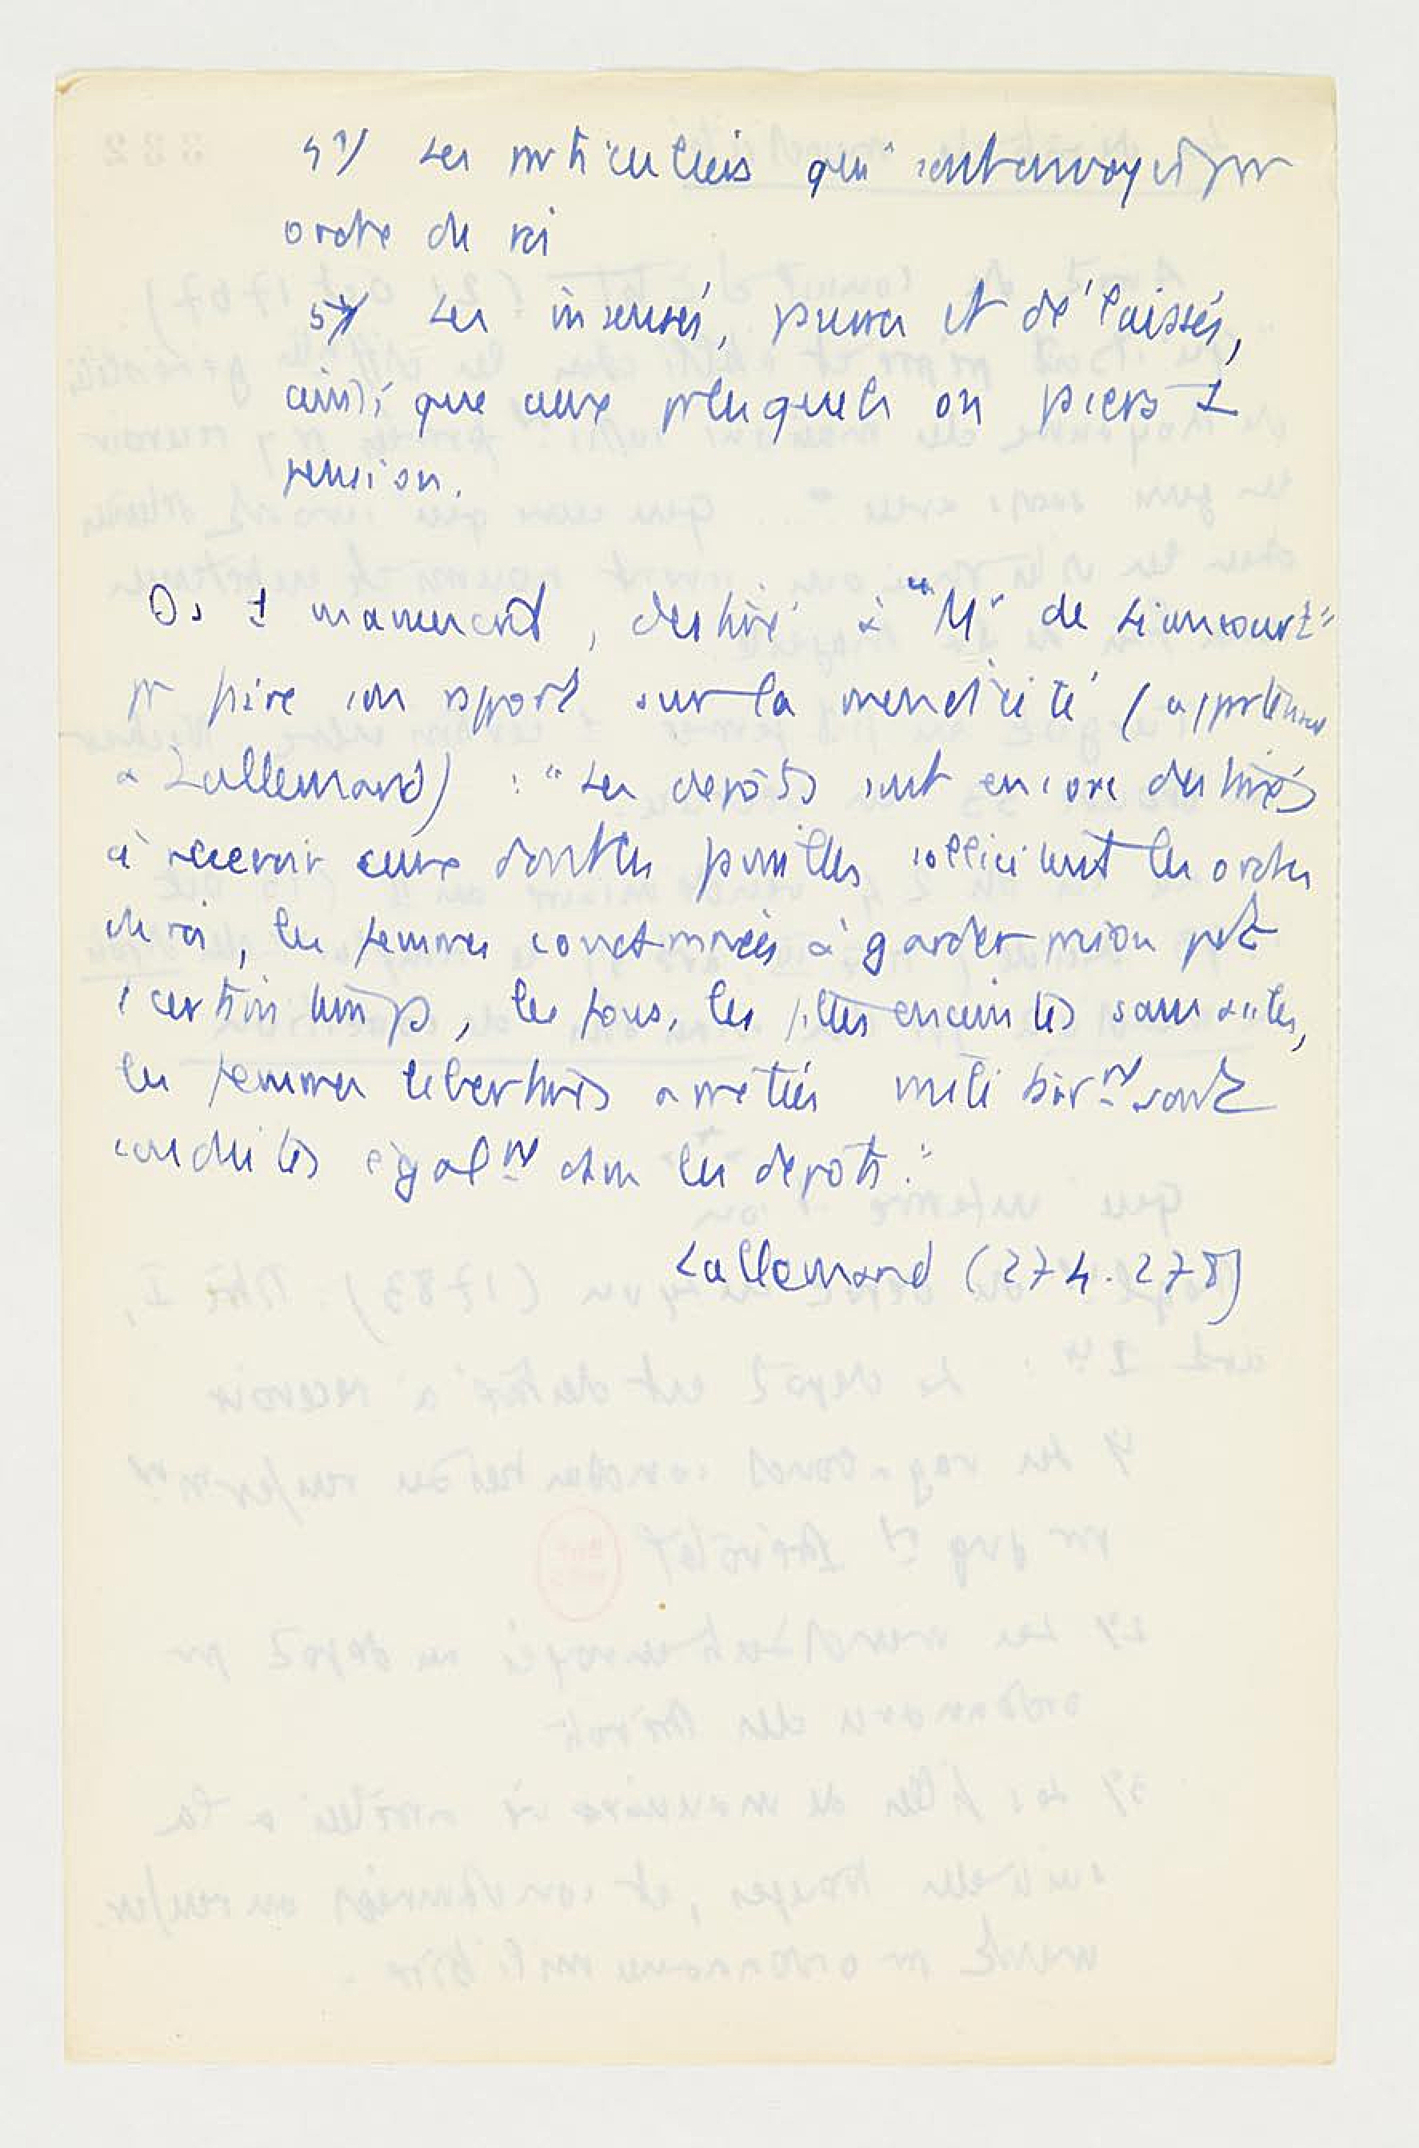 4°/ Les particuliers qui sont envoyés par
ordre du roi
5°/ Les insensés, pauvres et délaissés,
ainsi que ceux pr lesquels on paiera 1
pension.
Ds 1 manuscrit, destiné à "Mr de Liancourt"
pr faire son rapport sur la mendicité (appartenant
à Lallemand) : "Les dépôts sont encore destinés
à recevoir ceux dont les familles sollicitent les ordres
du roi, les femmes condamnées à garder prison pdt
1 certain temps, les fous, les filles enceintes sans asiles,
les femmes libertines arrêtées militairnt sont
conduites égalnt dans les dépôts."
Lallemand (274. 278)